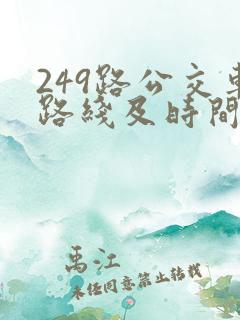 249路公交車
路綫及時間
禹江
未經同意禁止轉載